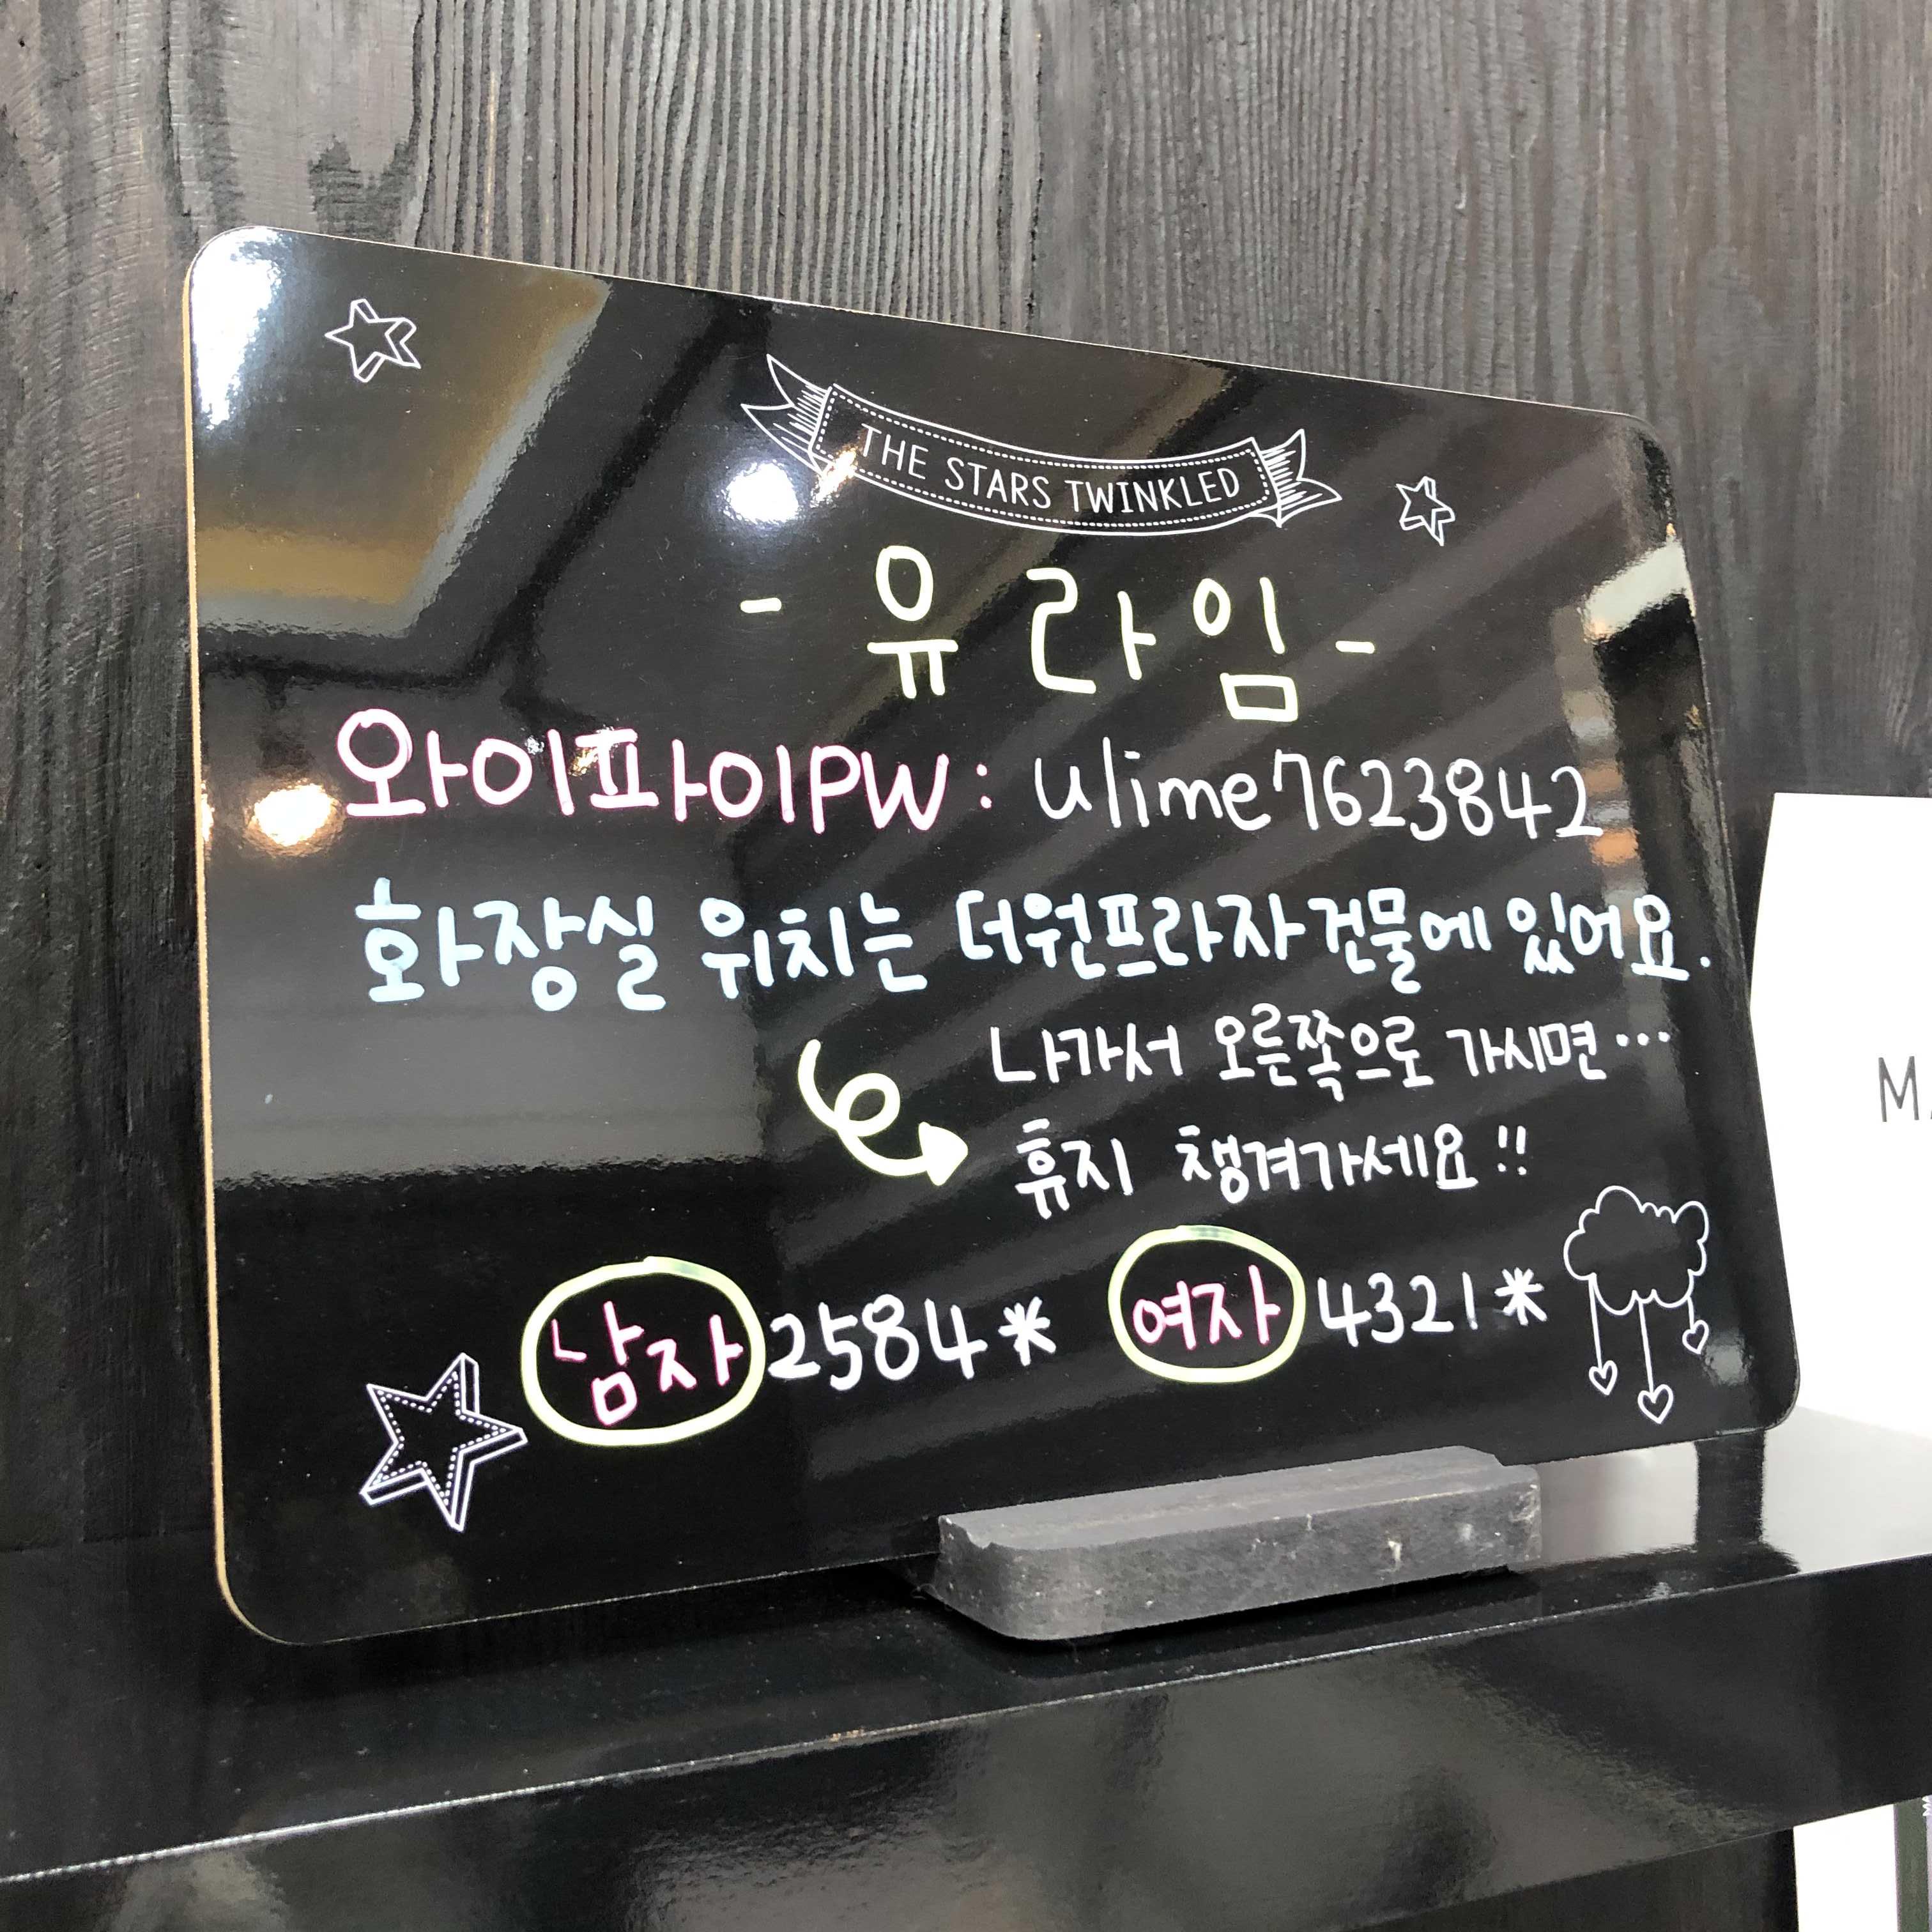 THE STARS TWINKLED
- 유라임 -
와이파이PW : ulime7623842
화장실 위치는 더원프라자건물에 있어요.
나가서 오른쪽으로 가시면...
휴지 챙겨가세요!!
남자 2584* 여자 4321*